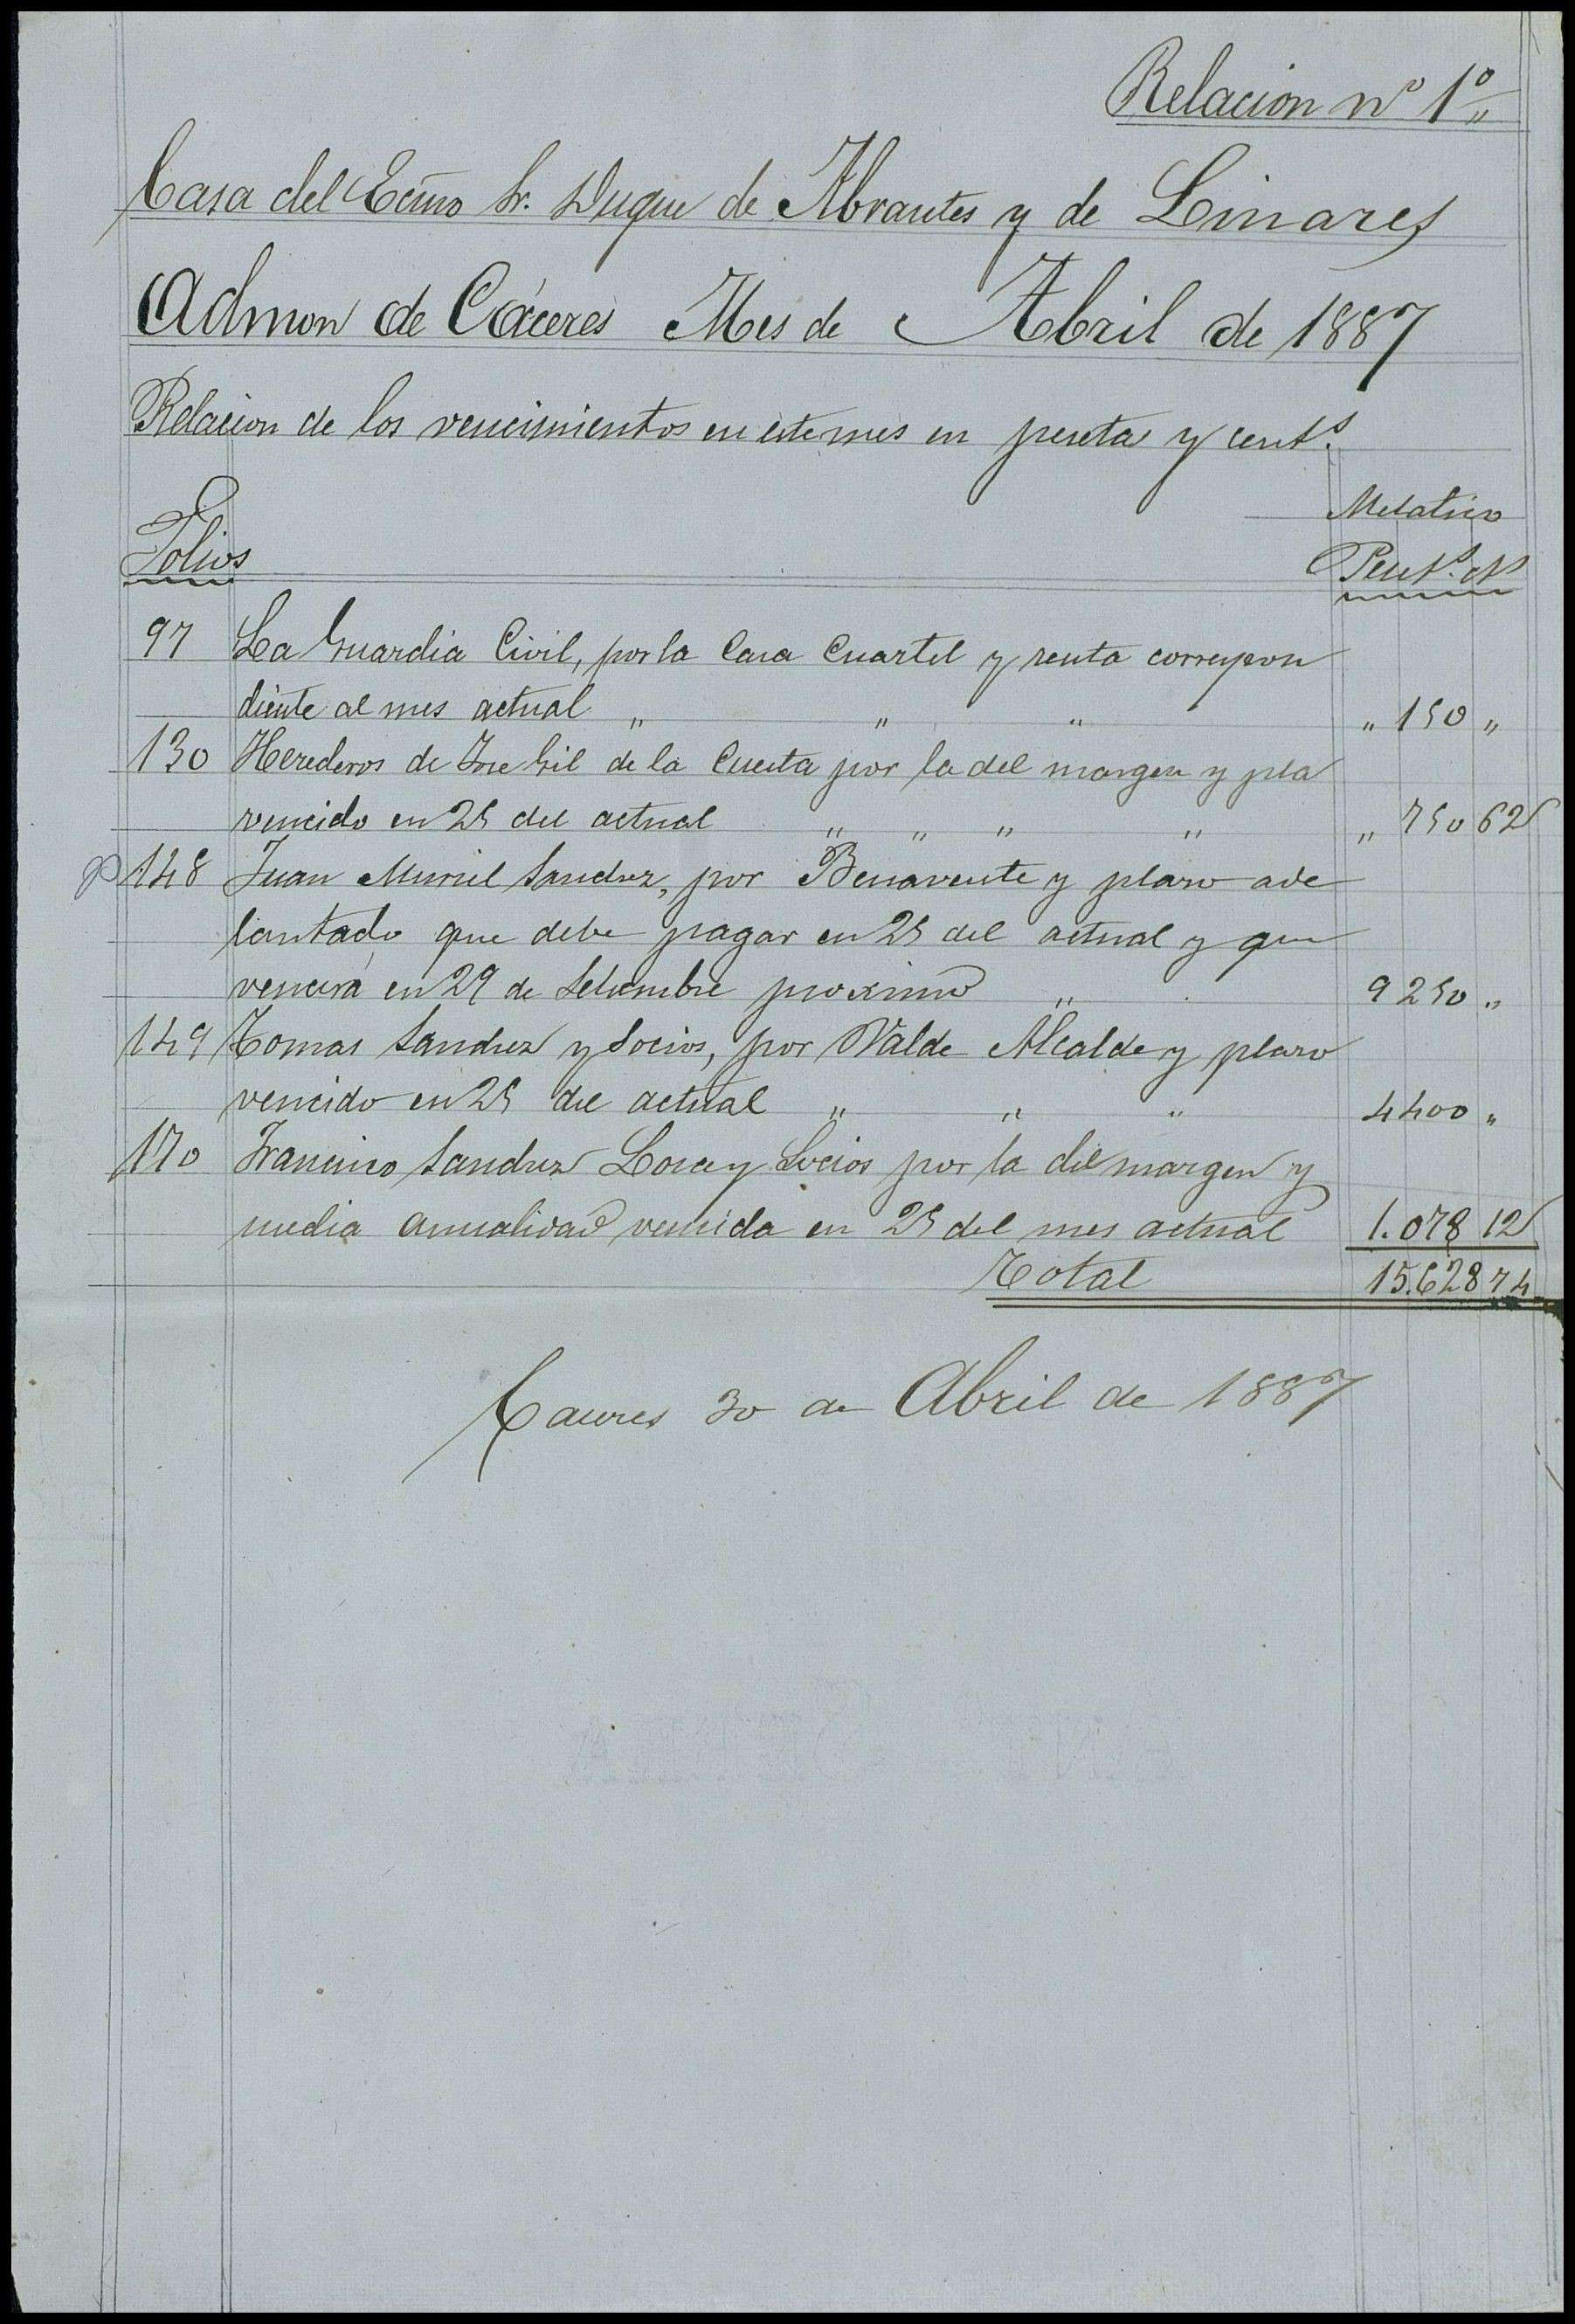 Relacion nº 1º „
Casa del Ecmo Sr. Duque de Abrantes y de Linares
Admon de Cáceres Mes de Abril de 1887
Relacion de los vencimientos en este mes en peseta y cents.
Metalico
Folios Peset.s cts
97 La Guardia Civil, por la Casa Cuartel y renta correspon
diente al mes actual „ „ „ „ 150 „
130 Herederos de Jose Gil de la Cuesta por la del margen y pla
vencido en 25 del actual „ „ „ „ „ 750 62
148 Juan Muriel Sanchez, por Benavente y plazo ade
lantado que debe pagar en 25 del actual y que
vencera en 29 de Setiembre proximo „ 9 250 „
149 Tomas Sanchez y Socios, por Valde Alcalde y plazo
vencido en 25 del actual „ „ „ 4 400 „
170 Francisco Sanchez y Socios por la del margen y
media anualidad vencida en 25 del mes actual 1.078 12
Total 15.628 74
Caceres 30 de Abril de 1887